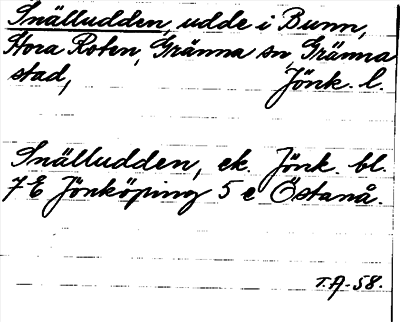 Snälludden, udde i Bunn,
Stora Roten, Gränna sn, Gränna
stad, Jönk. l.
Snälludden, ek. Jönk. bl.
7E Jönköping 5 e Östanå.
T.A-58.